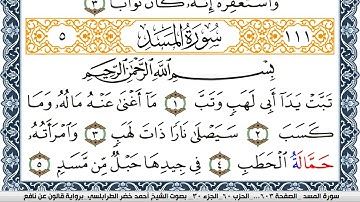 وَاسْتَغْفِرْهُ إِنَّهُ, كَانَ تَوَّابًا ٣
٥ سُورَةُ الْمَسَدِ ١١١
بِسْمِ اللَّهِ الرَّحْمَٰنِ الرَّحِيمِ
تَبَّتْ يَدَا أَبِي لَهَبٍ وَتَبَّ ١ مَا أَغْنَىٰ عَنْهُ مَالُهُ, وَمَا
كَسَبَ ٢ سَيَصْلَىٰ نَارًا ذَاتَ لَهَبٍ ٣ وَامْرَأَتُهُ,
حَمَّالَةُ الْحَطَبِ ٤ فِي جِيدِهَا حَبْلٌ مِّن مَّسَدٍ ٥
سورة المسد - الصفحة ٦٠٣... الحزب ٦٠ الجزء ٣٠ - بصوت الشيخ أحمد خضر الطرابلسي - برواية قالون عن نافع